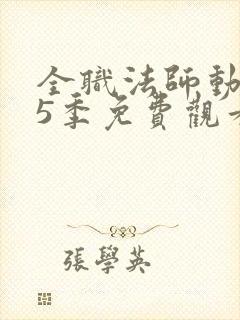 全職法師動
5季免費觀看
張學英